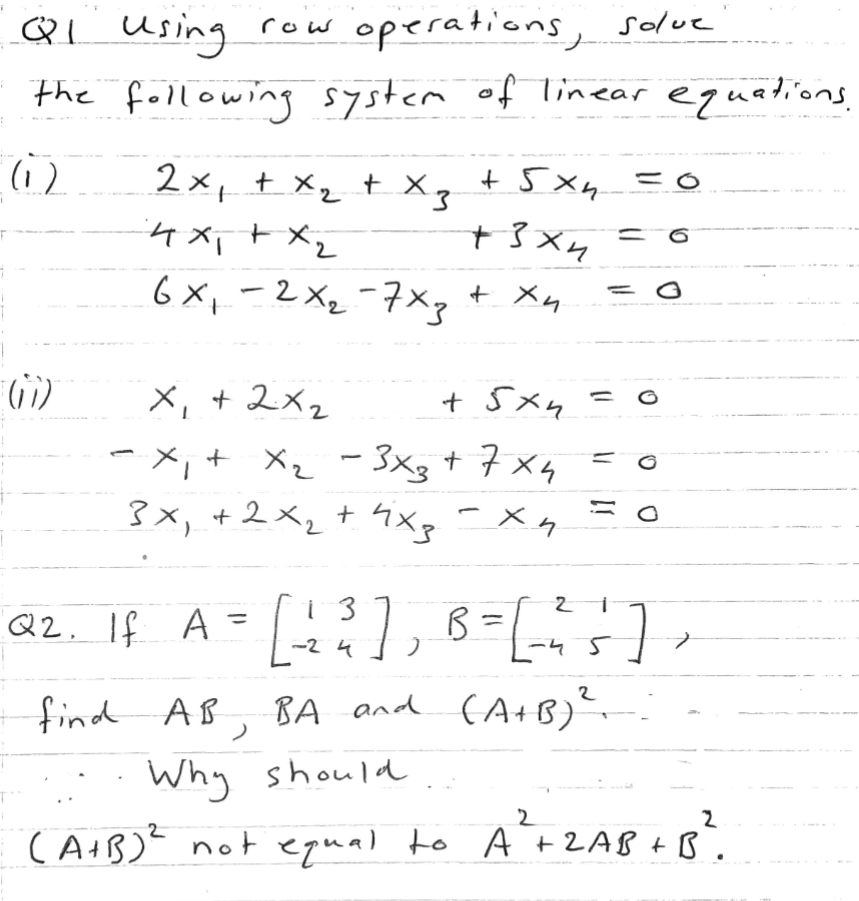 Q1 Using row operations, solve
the following system of linear equations.
(i) 2x₁ + x₂ + x₃ + 5x₄ = 0
4x₁ + x₂ + 3x₄ = 0
6x₁ - 2x₂ - 7x₃ + x₄ = 0
(ii) x₁ + 2x₂ + 5x₄ = 0
- x₁ + x₂ - 3x₃ + 7x₄ = 0
3x₁ + 2x₂ + 4x₃ - x₄ = 0
Q2. If A = [1 3; -2 4], B = [2 1; -4 5],
find AB, BA and (A+B)².
Why should
(A+B)² not equal to A² + 2AB + B².